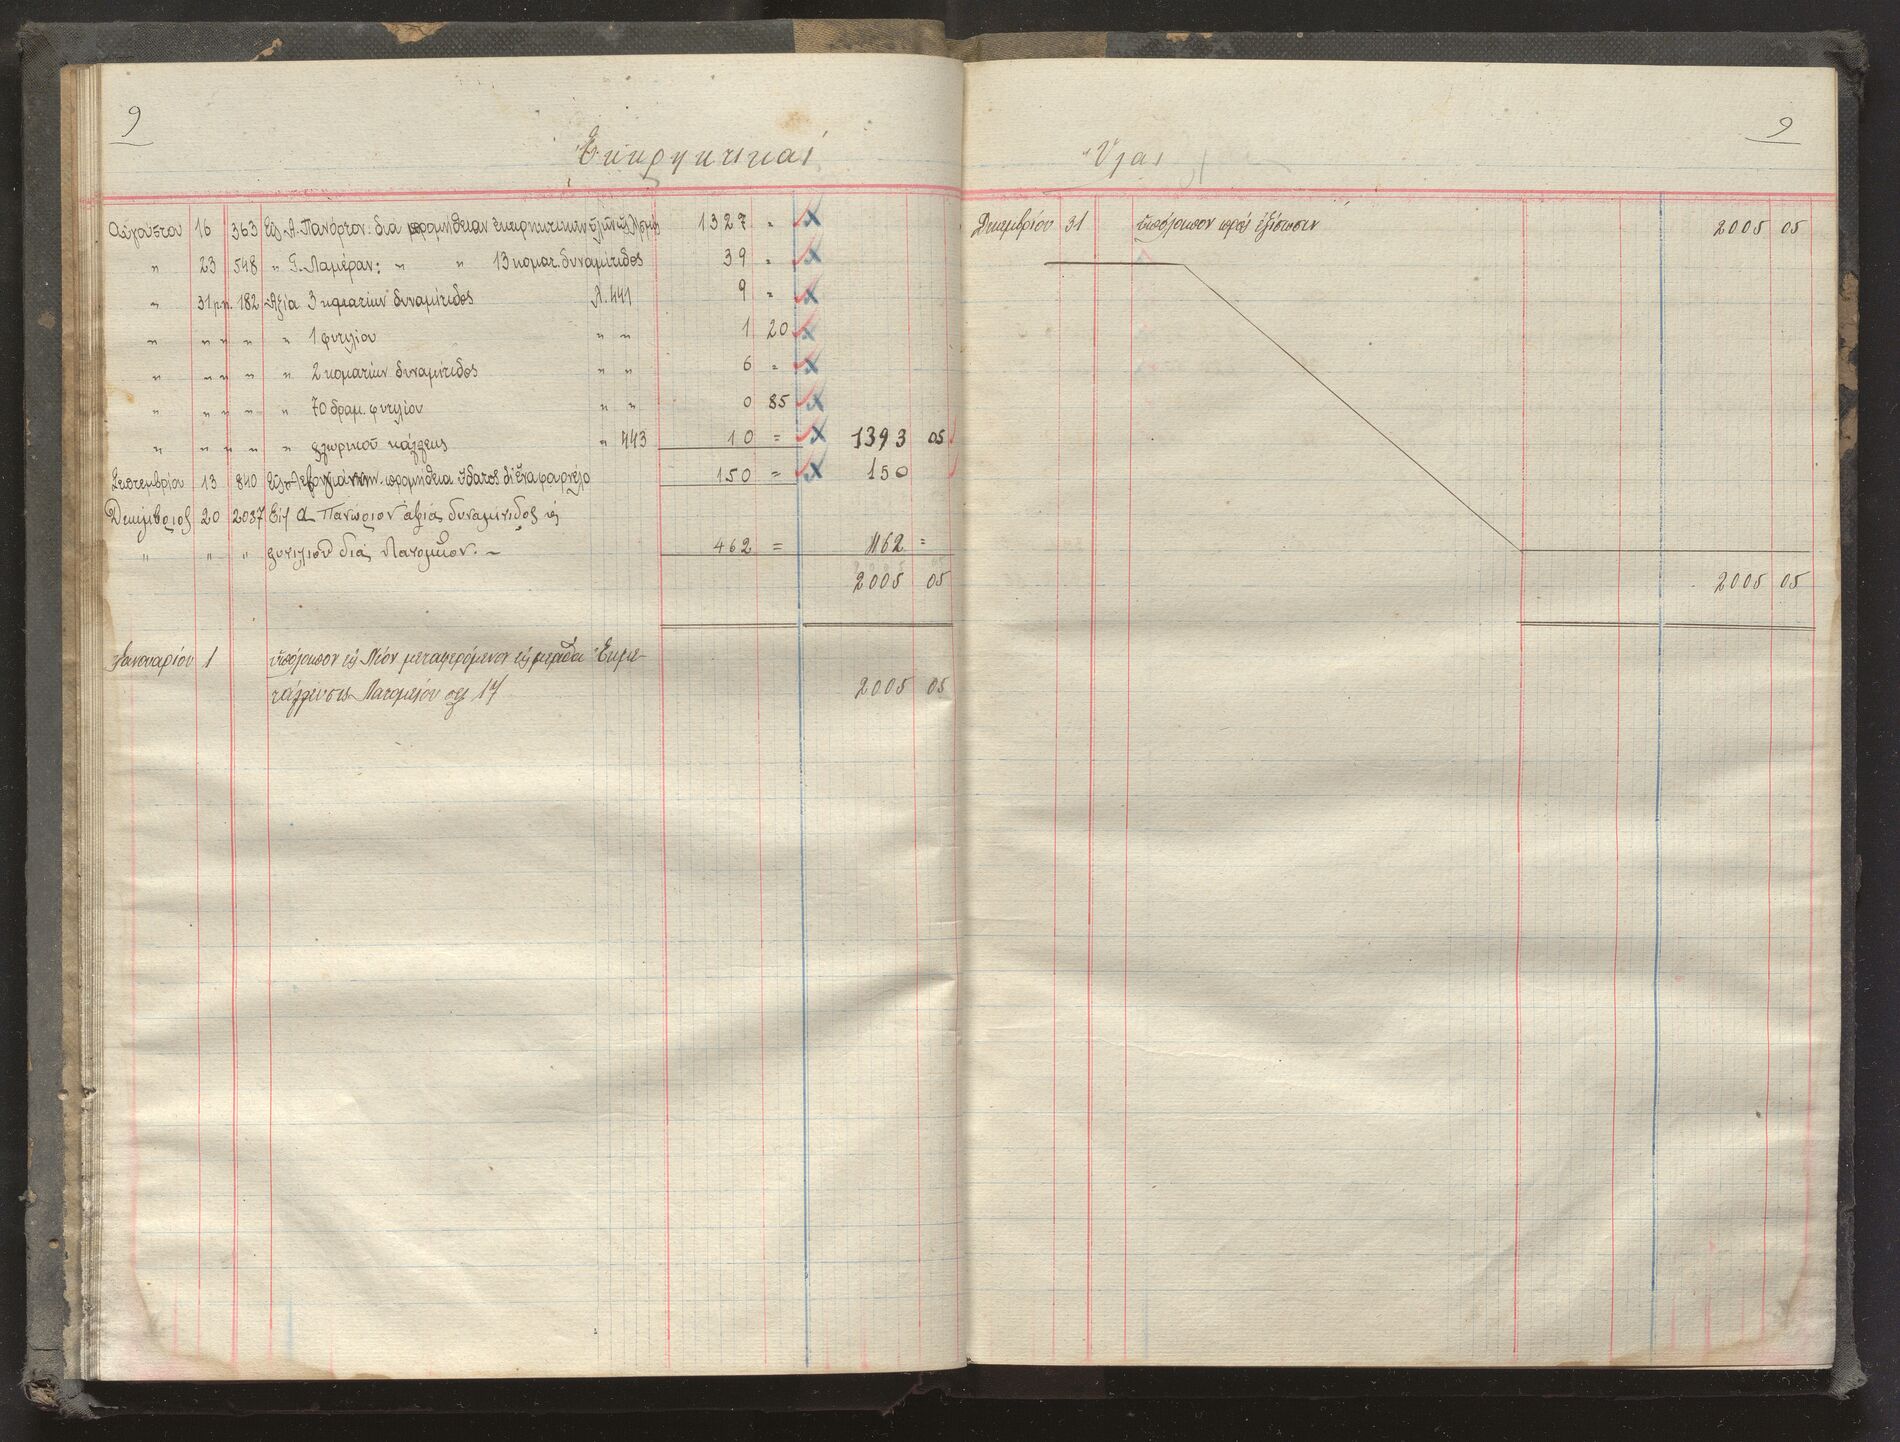 9
Ἐκρηκτικαὶ
Αὐγούστου 16 363 Εἰς Α. Πανόρτον διὰ προμήθειαν ἐκρηκτικῶν 1327 =
" 23 548 " Γ. Λαμέραν: " " 13 κοματ. δυναμίτιδος 39 =
" 31 π.π. 182 Ἀξία 3 κοματίων δυναμίτιδος Λ. 441 9 =
" " " " " 1 φυτιλίου " " 1 20
" " " " " 2 κοματίων δυναμίτιδος " " 6 =
" " " " " 70 δραμ. φυτιλίου " " 0 85
" " " " " χλωρικοῦ κάλλεως " 443 10 = 1393 05
Σεπτεμβρίου 13 840 προμήθεια ὕδατος 150 = 150
Δεκέμβριος 20 2037 Εἰς Α Πανωριον ἀξίας δυναμίτιδος κ
" " " φυτιλίου διὰ Λατομεῖον. – 462 = 462 =
2005 05
Ἰανουαρίου 1 ὑπόλοιπον εἰς Νέον μεταφερόμενον εἰς μερίδα Ἐκμε-
τάλλευσις Λατομείου σελ 17 2005 05
9
Ὗλαι
Δεκεμβρίου 31 ὑπόλοιπον πρὸς ἐξίσωσιν 2005 05
2005 05